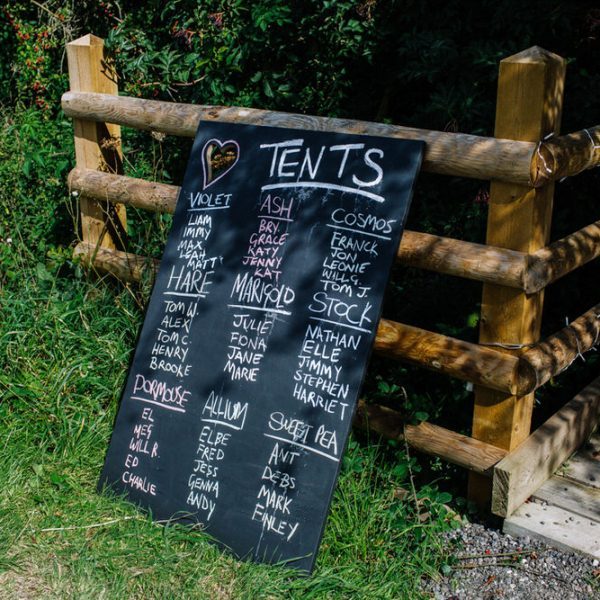 TENTS
VIOLET
LIAM
IMMY
MAX
LEAH
MATT
ASH
BRY
GRACE
KATY
JENNY
KAT
COSMOS
FRANCK
JON
LEONIE
WILL G.
TOM J.
HARE
TOM W.
ALEX
TOM C.
HENRY
BROOKE
MARIGOLD
JULIE
FIONA
JANE
MARIE
STOCK
NATHAN
ELLE
JIMMY
STEPHEN
HARRIET
DORMOUSE
EL
MES
WILL R.
ED
CHARLIE
ALLIUM
ELBE
FRED
JESS
GENNA
ANDY
SWEET PEA
ANT
DEBS
MARK
FINLEY